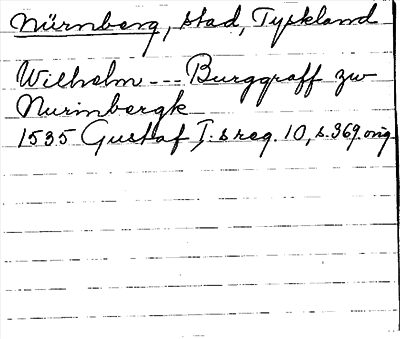 Nürnberg, stad, Tyskland
Wilhelm --- Burggraff zw
Nurmbergk
1535 Gustaf I:s reg. 10, s. 369. orig.